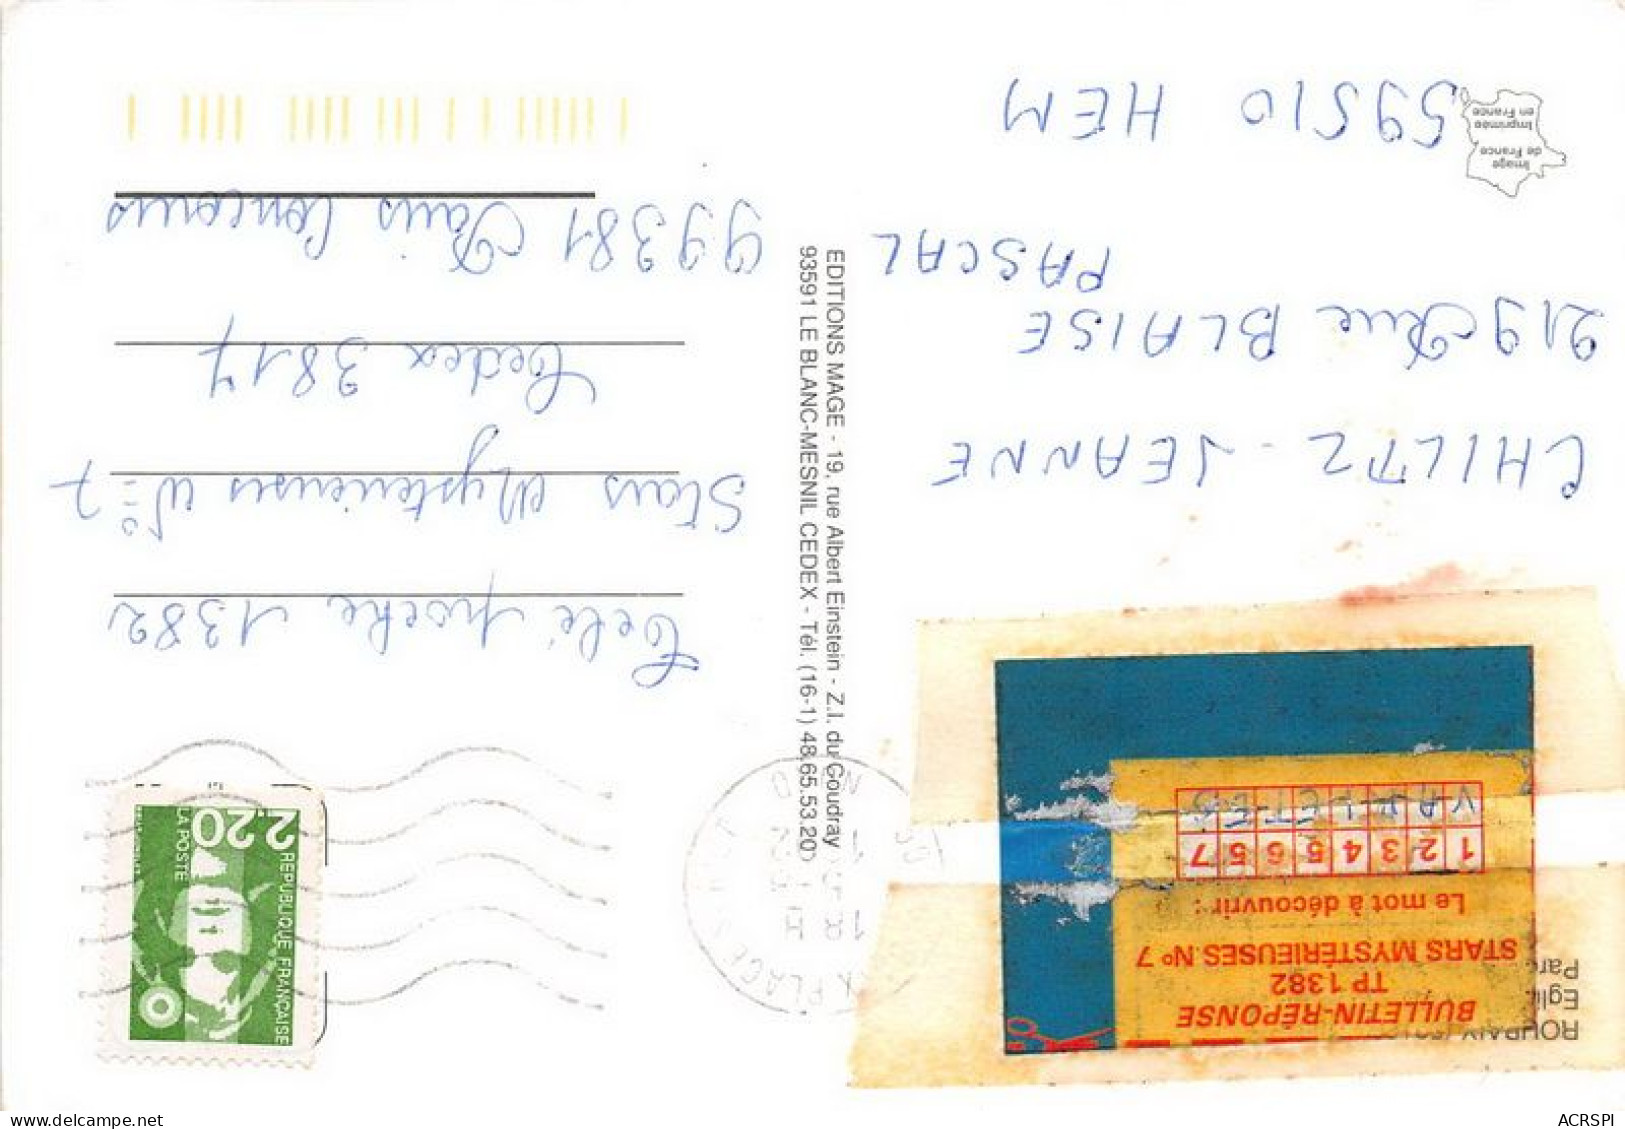 ROUBAIX
Egli
Parc
BULLETIN-RÉPONSE
TP 1382
STARS MYSTÉRIEUSES N° 7
Le mot à découvrir :
1 2 3 4 5 6 5 7
CHILTZ - JEANNE
219 Rue BLAISE
PASCAL
59510 HEM
Image
de France
Imprimée
en France
EDITIONS MAGE - 19, rue Albert Einstein - Z.I. du Coudray
93591 LE BLANC-MESNIL CEDEX - Tél. (16-1) 48.65.53.20
REPUBLIQUE FRANÇAISE
2,20
LA POSTE
Télé poche 1382
Stars Mysterieuses N° 7
Cedex 3817
99381 Paris Concours
ACRSPI